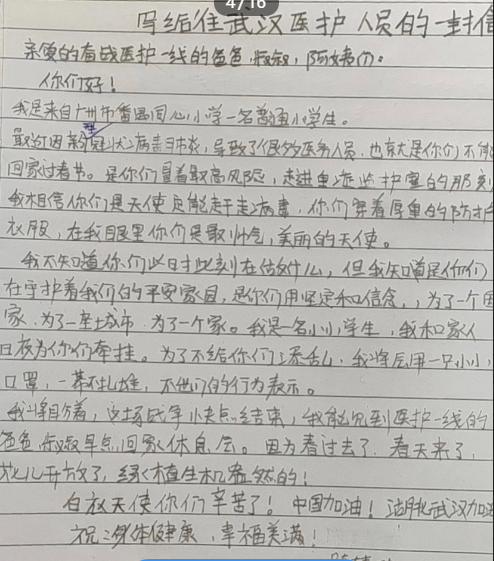 4/16
写给住武汉医护人员的一封信
亲爱的奋战医护一线的爸爸、叔叔,阿姨们:
你们好!
我是来自广州市番禺同心小学一名普通小学生。
最近因为新型冠状病毒,导致了很多医务人员,也就是你们不能
回家过春节。是你们冒着最高风险,走进重症监护室的那刻
我相信你们是天使定能赶走病毒,你们穿着厚重的防护
衣服,在我眼里你们是最帅气,美丽的天使。
我不知道你们此时此刻在做什么,但我知道是你们
在守护着我们的平安家园,是你们用坚定和信念,,为了一个国
家、为了一座城市、为了一个家。我是一名小小学生,我和家人
日夜为你们牵挂。为了不给你们添乱,我将会用一只小小
口罩,一不扎堆,不出门的行为表示。
我期盼着,这场战争快点结束,我能见到医护一线的
爸爸、叔叔早点回家休息会。因为春过去了,春天来了,
花儿开放了,绿植生机盎然的!
白衣天使你们辛苦了!中国加油!武汉加油
祝:身体健康,幸福美满!